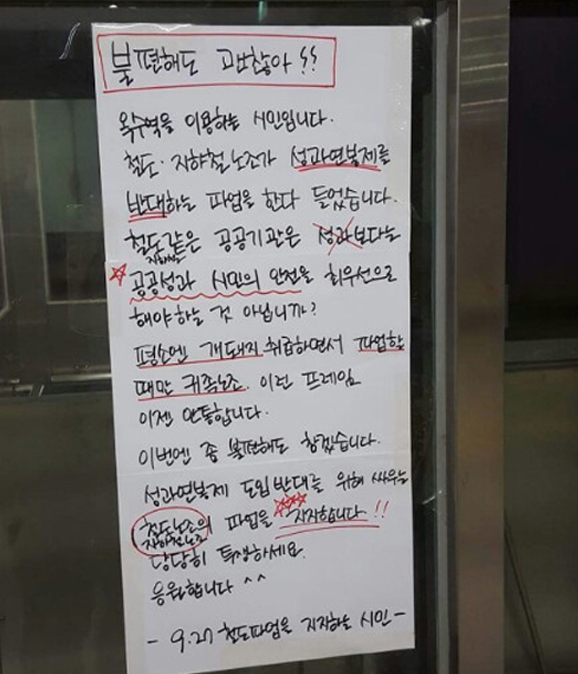 불편해도 괜찮아!!
옥수역을 이용하는 시민입니다.
철도·지하철노조가 성과연봉제를
반대하는 파업을 한다 들었습니다.
철도같은 공공기관은 성과보다는
지하철
공공성과 시민의 안전을 최우선으로
해야하는 것 아닙니까?
평소엔 개돼지 취급하면서 파업할
때만 귀족노조. 이런 프레임
이젠 안통합니다.
이번엔 좀 불편해도 참겠습니다.
성과연봉제 도입 반대를 위해 싸우는
철도노조의 파업을 지지합니다!!
지하철노조
당당히 투쟁하세요.
응원합니다 ^^
- 9.27 철도파업을 지지하는 시민 -